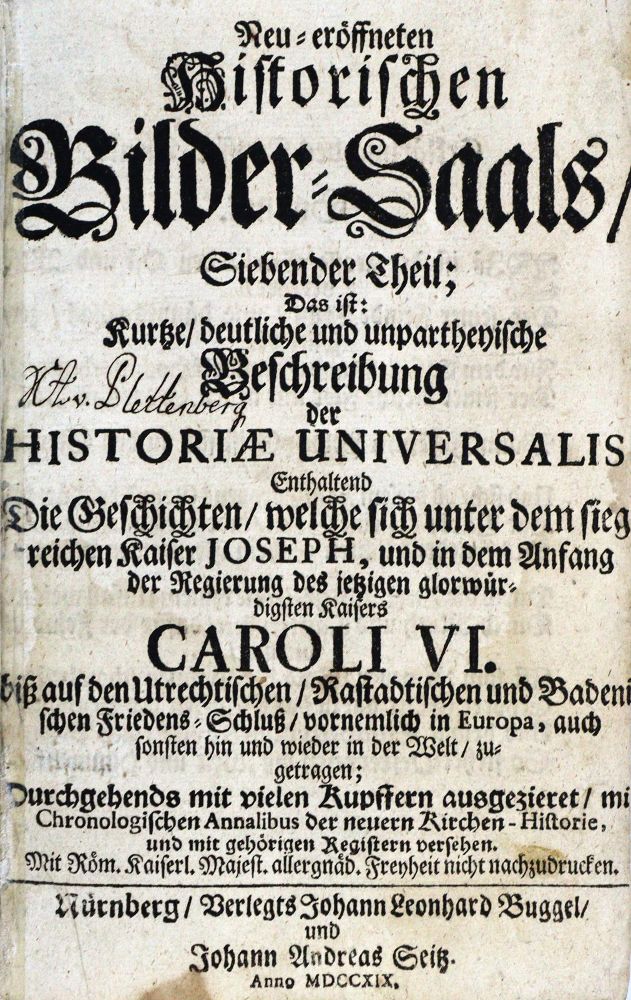 Neu-eröffneten
Historischen
Bilder-Saals/
Siebender Theil;
Das ist:
Kurtze/ deutliche und unpartheyische
Beschreibung
v. Plettenberg
der
HISTORIÆ UNIVERSALIS
Enthaltend
Die Geschichten/ welche sich unter dem sieg
reichen Kaiser JOSEPH, und in dem Anfang
der Regierung des jetzigen glorwür-
digsten Kaisers
CAROLI VI.
biß auf den Utrechtischen/ Rastadtischen und Badeni
schen Friedens-Schluß/ vornemlich in Europa, auch
sonsten hin und wieder in der Welt/ zu-
getragen;
Durchgehends mit vielen Kupffern ausgezieret/ mi
Chronologischen Annalibus der neuern Kirchen-Historie,
und mit gehörigen Registern versehen.
Mit Röm. Kaiserl. Majest. allergnäd. Freyheit nicht nachzudrucken.
Nürnberg/ Verlegts Johann Leonhard Buggel/
und
Johann Andreas Seitz.
Anno MDCCXIX.